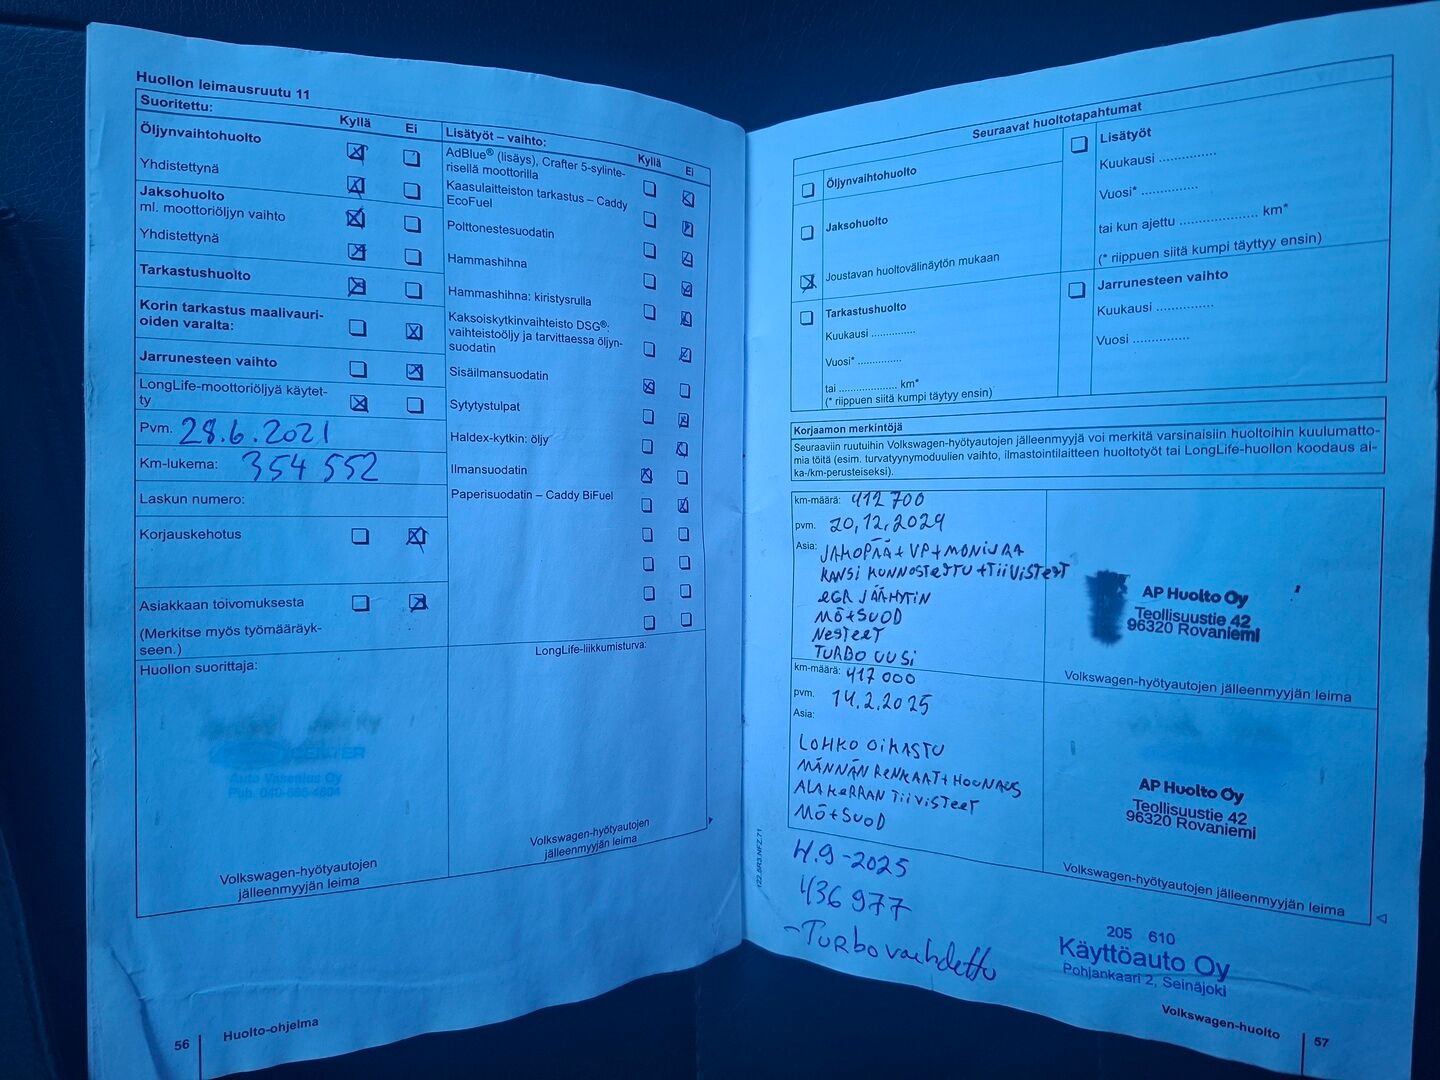 Huollon leimausruutu 11
Suoritettu:
Kyllä
Ei
Öljynvaihtohuolto
Yhdistettynä
Jaksohuolto
ml. moottoriöljyn vaihto
Yhdistettynä
Tarkastushuolto
Korin tarkastus maalivauri-
oiden varalta:
Jarrunesteen vaihto
LongLife-moottoriöljyä käytet-
ty
Pvm. 28.6.2021
Km-lukema: 354 552
Laskun numero:
Korjauskehotus
Asiakkaan toivomuksesta
(Merkitse myös työmääräyk-
seen.)
Huollon suorittaja:
CENTER
Auto Vasenius Oy
Volkswagen-hyötyautojen
jälleenmyyjän leima
Lisätyöt – vaihto:
Kyllä
Ei
AdBlue® (lisäys), Crafter 5-sylinte-
risellä moottorilla
Kaasulaitteiston tarkastus – Caddy
EcoFuel
Polttonestesuodatin
Hammashihna
Hammashihna: kiristysrulla
Kaksoiskytkinvaihteisto DSG®:
vaihteistoöljy ja tarvittaessa öljyn-
suodatin
Sisäilmansuodatin
Sytytystulpat
Haldex-kytkin: öljy
Ilmansuodatin
Paperisuodatin – Caddy BiFuel
LongLife-liikkumisturva:
Volkswagen-hyötyautojen
jälleenmyyjän leima
56
Huolto-ohjelma
Seuraavat huoltotapahtumat
Öljynvaihtohuolto
Jaksohuolto
Joustavan huoltovälinäytön mukaan
Tarkastushuolto
Kuukausi ...............
Vuosi* ...............
tai .................... km*
(* riippuen siitä kumpi täytyy ensin)
Lisätyöt
Kuukausi ...............
Vuosi* ...............
tai kun ajettu .................... km*
(* riippuen siitä kumpi täyttyy ensin)
Jarrunesteen vaihto
Kuukausi ...............
Vuosi ...............
Korjaamon merkintöjä
Seuraaviin ruutuihin Volkswagen-hyötyautojen jälleenmyyjä voi merkitä varsinaisiin huoltoihin kuulumatto-
mia töitä (esim. turvatyynymoduulien vaihto, ilmastointilaitteen huoltotyöt tai LongLife-huollon koodaus ai-
ka-/km-perusteiseksi).
km-määrä: 412 700
pvm. 20,12,2024
Asia: JAKOPÄÄ + VP + MONIURA
KANSI KUNNOSTETTU + TIIVISTEET
EGR JÄÄHYTIN
MÖ + SUOD
NESTEET
TURBO UUSI
AP Huolto Oy
Teollisuustie 42
96320 Rovaniemi
Volkswagen-hyötyautojen jälleenmyyjän leima
km-määrä: 417 000
pvm. 14.2.2025
Asia:
LOHKO OIKASTU
MÄNNÄN RENKAAT + HOONAUS
ALAKERRAN TIIVISTEET
MÖ + SUOD
AP Huolto Oy
Teollisuustie 42
96320 Rovaniemi
Volkswagen-hyötyautojen jälleenmyyjän leima
4.9-2025
436 977
- Turbo vaihdettu
205 610
Käyttöauto Oy
Pohjankaari 2, Seinäjoki
122.5R3.NFZ.71
Volkswagen-huolto
57